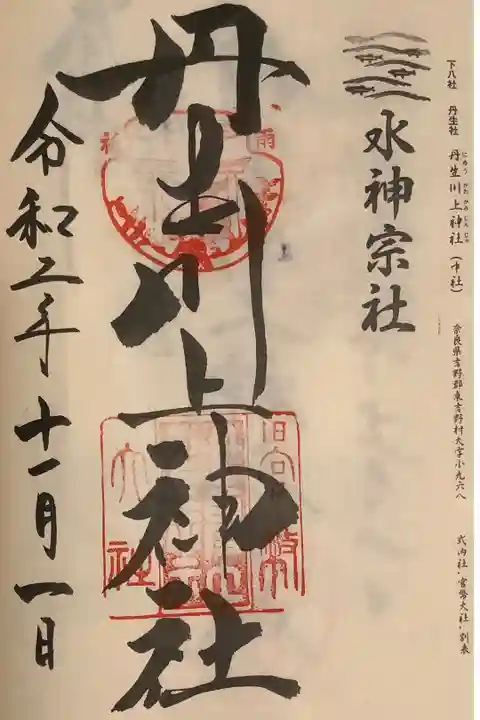 下八社 丹生社 丹生川上神社(中社)
にゅうかわかみじんじゃ
奈良県吉野郡東吉野村大字小九六八
式内社・官幣大社・別表
水神宗社
丹生川上神社
雨
大社
令和二年十一月一日